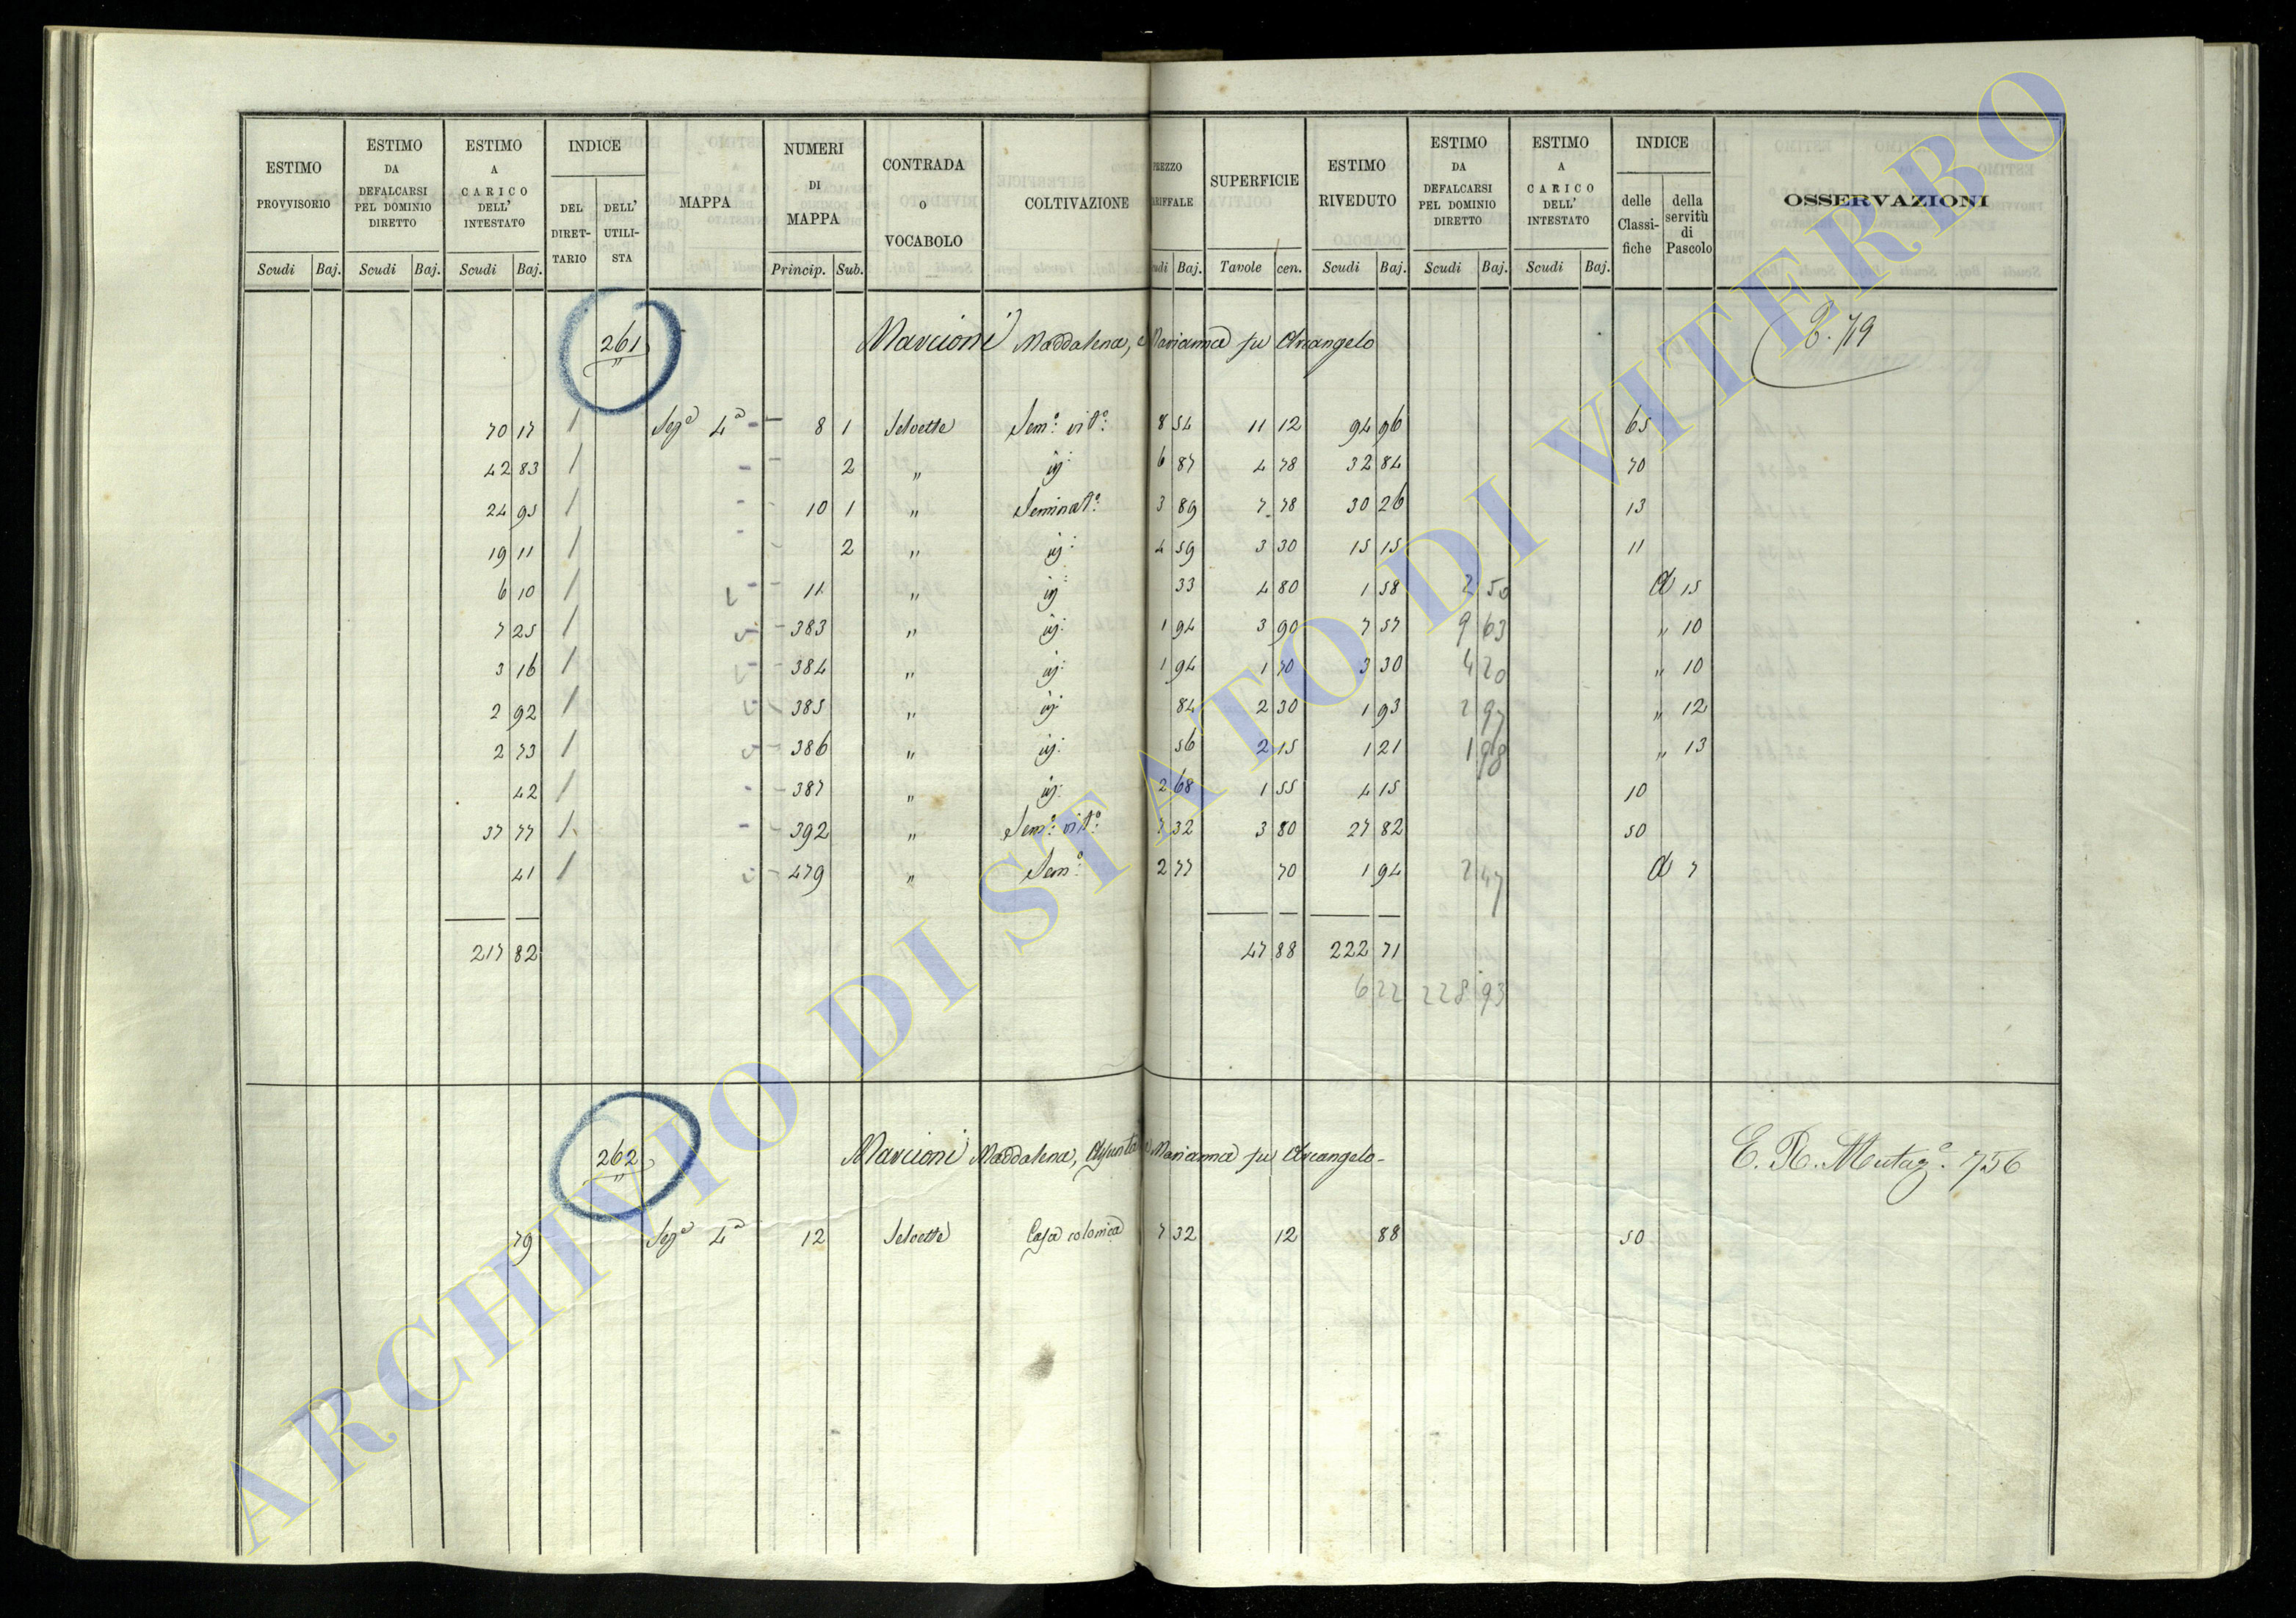 ESTIMO PROVVISORIO | ESTIMO DA DEFALCARSI PEL DOMINIO DIRETTO | ESTIMO A CARICO DELL' INTESTATO | INDICE DEL DIRET-TARIO | DELL' UTILI-STA | MAPPA | NUMERI DI MAPPA | CONTRADA O VOCABOLO | COLTIVAZIONE | REZZO ARIFFALE | SUPERFICIE | ESTIMO RIVEDUTO | ESTIMO DA DEFALCARSI PEL DOMINIO DIRETTO | ESTIMO A CARICO DELL' INTESTATO | INDICE delle Classi-fiche | della servitù di Pascolo | OSSERVAZIONI
Scudi | Baj. | Scudi | Baj. | Scudi | Baj. | Princip. | Sub. | udi | Baj. | Tavole | cen. | Scudi | Baj. | Scudi | Baj. | Scudi | Baj.
261 Marcioni Maddalena, e Marianna fu Arcangelo P. 79
70 17 1 Sez.ª 4ª 8 1 Selvette Sem.º vit.º 8 54 11 12 94 96 65
42 83 1 2 " id: 6 87 4 78 32 84 70
24 95 1 10 1 " Seminat.º 3 89 7 78 30 26 13
19 11 1 2 " id: 4 59 3 30 15 15 11
6 10 1 11 " id: 33 4 80 1 58 2 50 A 15
7 25 1 383 " id: 1 94 3 90 7 57 9 63 " 10
3 16 1 384 " id: 1 94 1 70 3 30 4 20 " 10
2 92 1 385 " id: 84 2 30 1 93 2 97 " 12
2 73 1 386 " id: 56 2 15 1 21 1 98 " 13
42 1 387 " id: 2 68 1 55 4 15 10
37 77 1 392 " Sem.º vit.º 7 32 3 80 27 82 50
41 1 479 " Sem.º 2 77 70 1 94 2 47 A 7
217 82 47 88 222 71
6 22 228 93
262 Marcioni Maddalena, Assunta e Marianna fu Arcangelo E. R. Mutaz.e 756
79 Sez.ª 4ª 12 Selvette Casa colonica 7 32 12 88 50
ARCHIVIO DI STATO DI VITERBO